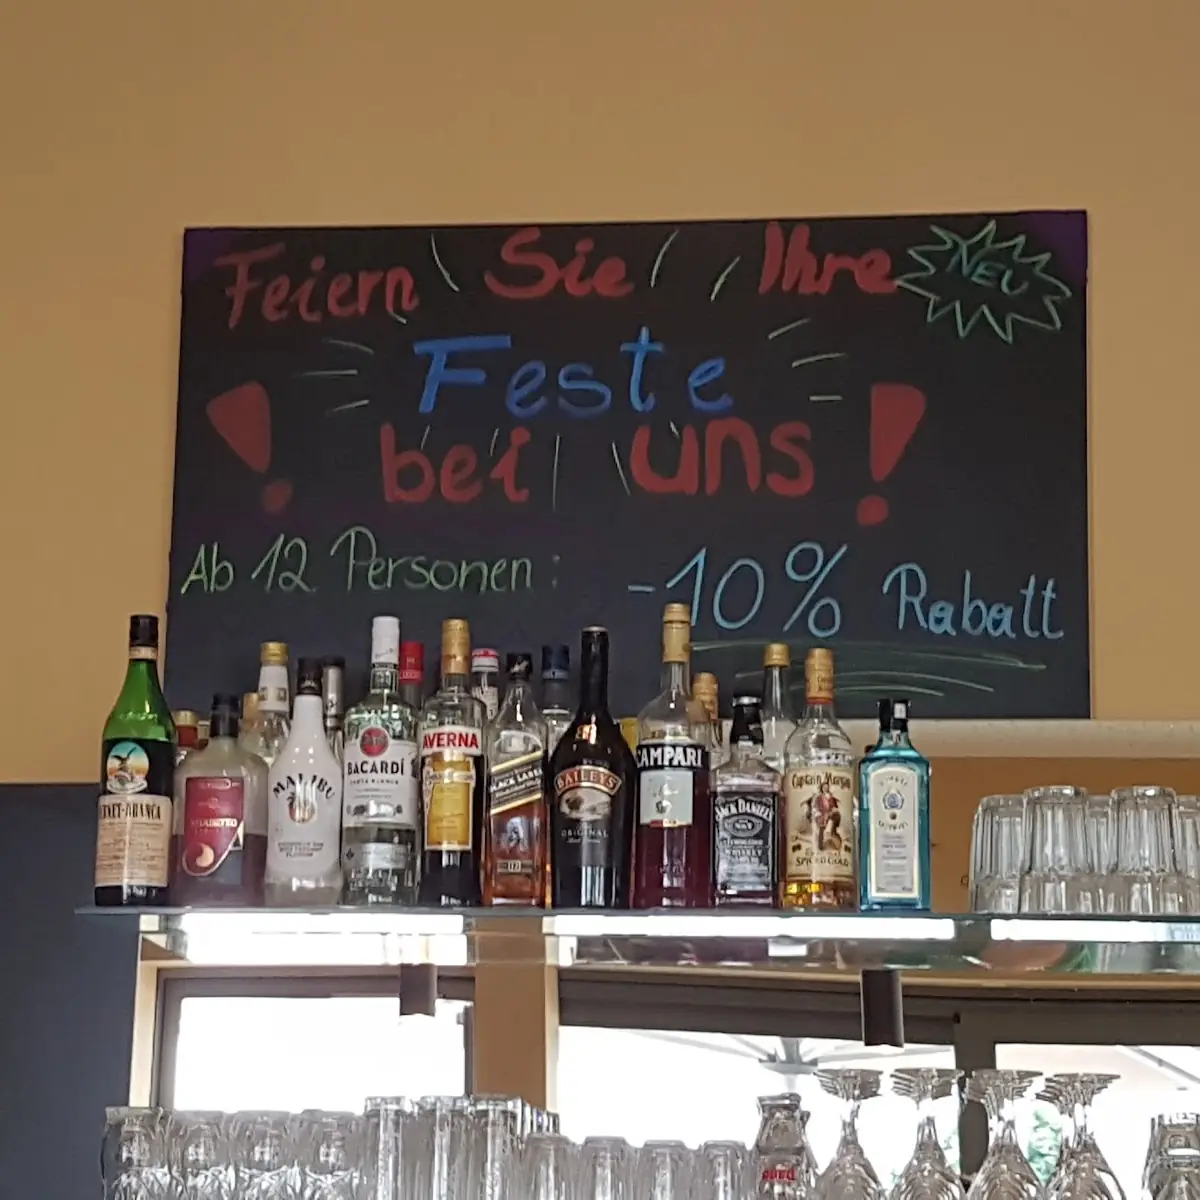 Feiern Sie Ihre
NEU
Feste
! bei uns !
Ab 12 Personen: -10% Rabatt
MALIBU
BACARDÍ
AVERNA
BLACK LABEL
BAILEYS
ORIGINAL
CAMPARI
JACK DANIEL'S
Captain Morgan
SPICED GOLD